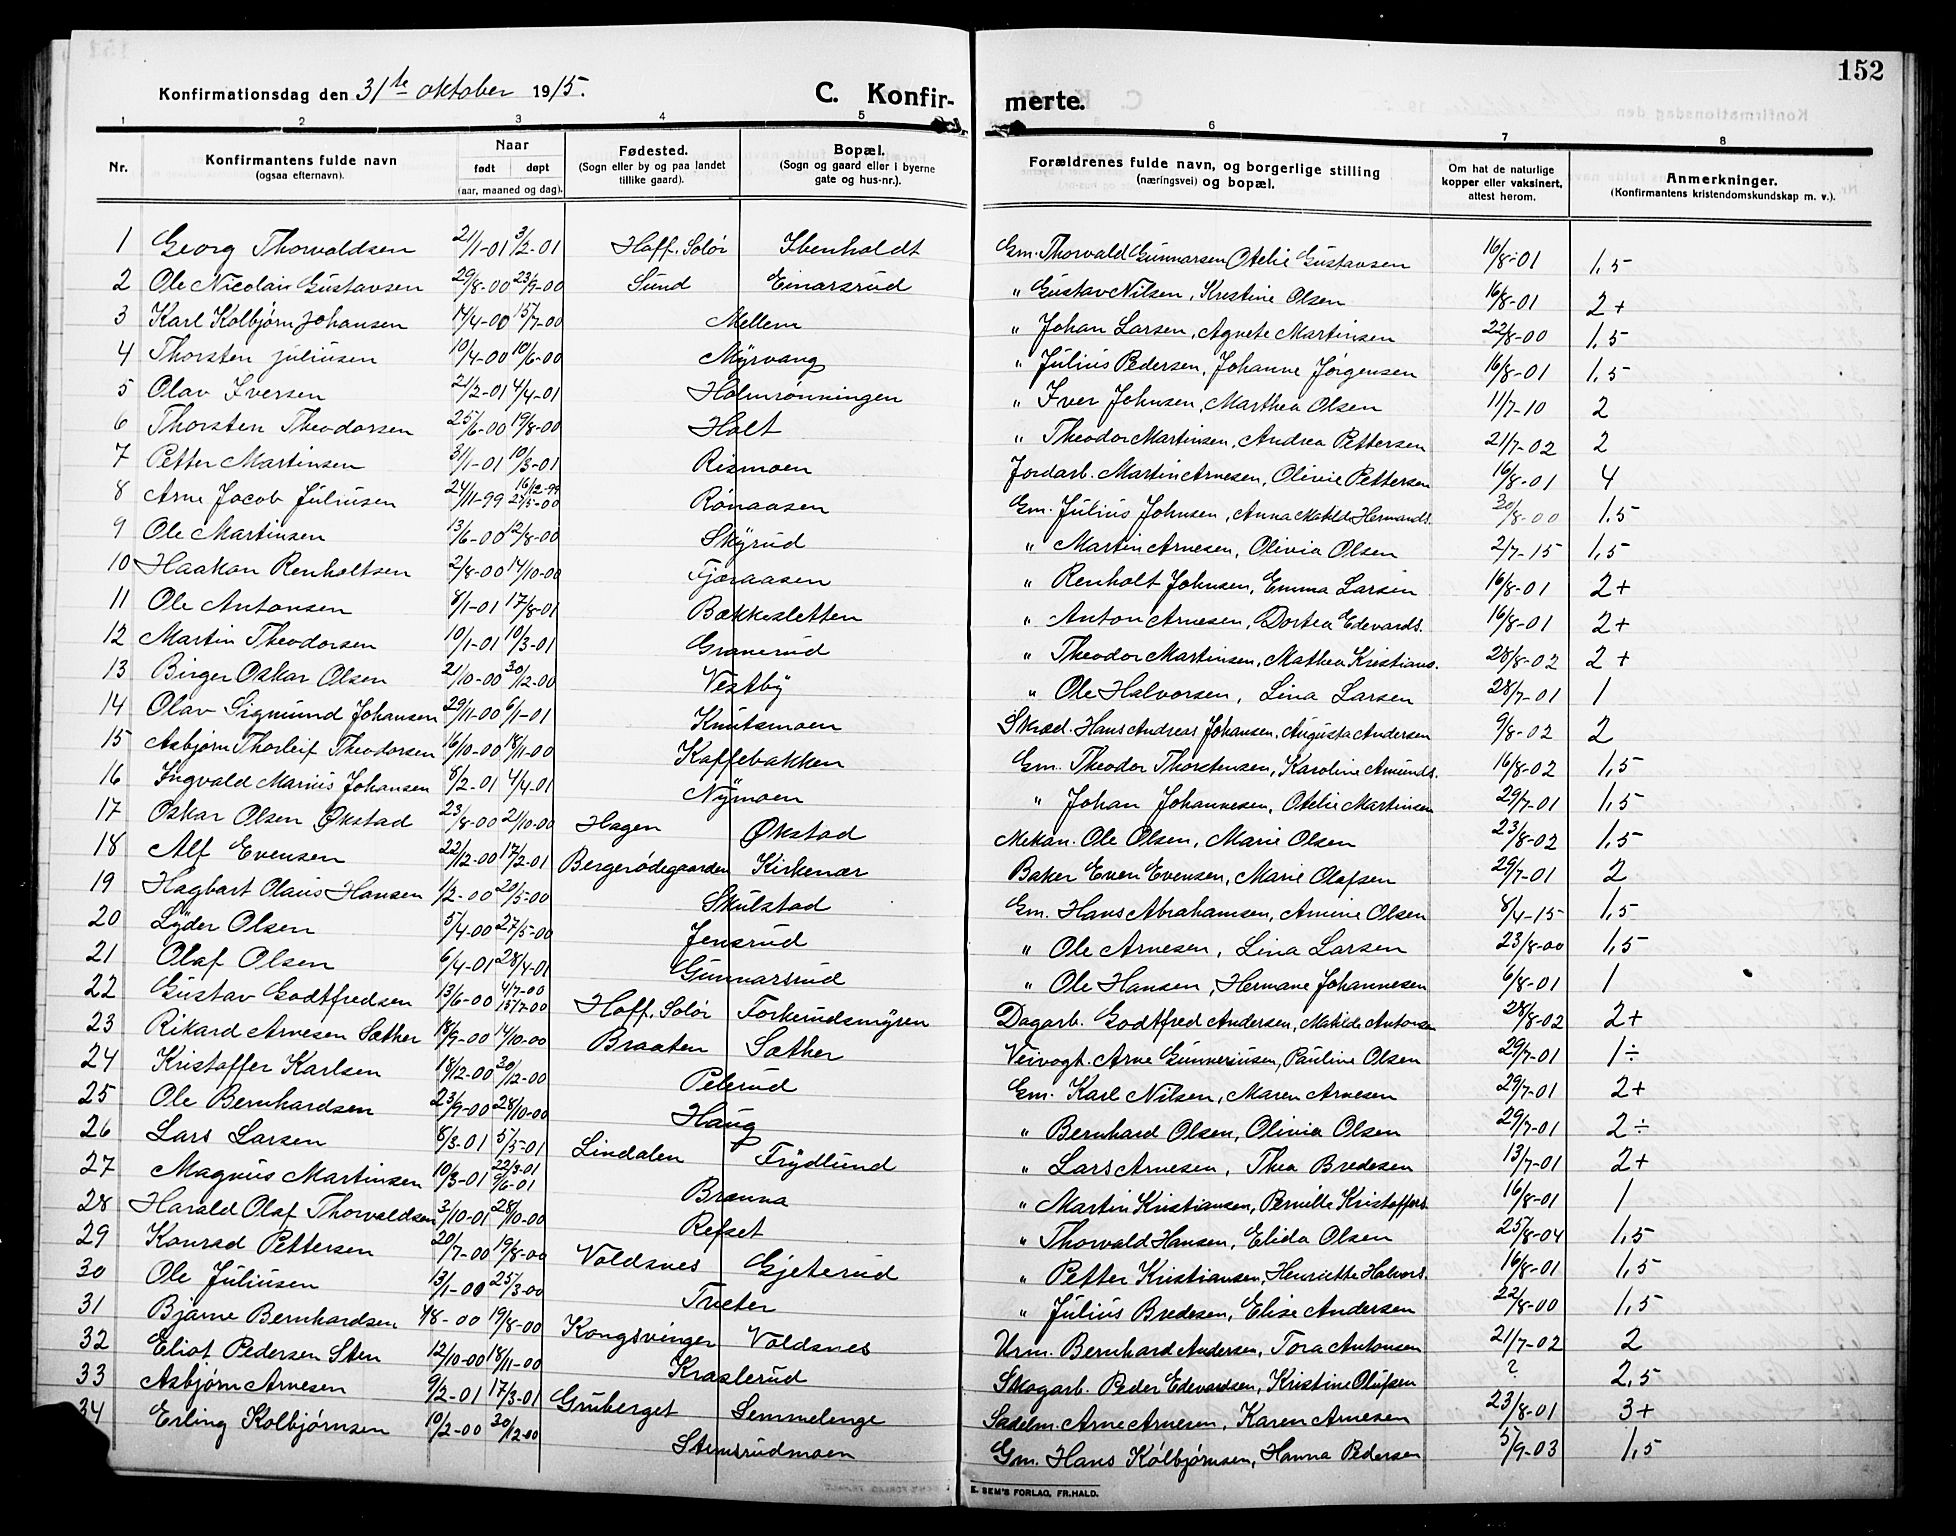 152
Konfirmationsdag den 31te oktober 1915.
C. Konfir- merte.
1 2 3 4 5 6 7 8
Nr. Konfirmantens fulde navn (ogsaa efternavn). Naar født døpt (aar, maaned og dag). Fødested. (Sogn eller by og paa landet tillike gaard). Bopæl. (Sogn og gaard eller i byerne gate og hus-nr.). Forældrenes fulde navn, og borgerlige stilling (næringsvei) og bopæl. Om hat de naturlige kopper eller vaksinert, attest herom. Anmerkninger. (Konfirmantens kristendomskundskap m. v.).
1 Georg Thorvaldsen 2/1-01 3/2-01 Hoff. Solør Ibenholdt Gm. Thorvald Gunnarsen Otelie Gustavsen 16/8-01 1,5
2 Ole Nicolai Gustavsen 29/8-00 23/9-00 Sund Einarsrud " Gustav Nilsen, Kristine Olsen 16/8-01 2+
3 Karl Kolbjørn Johansen 17/4-00 15/7-00 Mellem " Johan Larsen, Agnete Martinsen 22/8-00 1,5
4 Thorsten Juliusen 10/4-00 10/6-00 Myrvang " Julius Pedersen, Johanne Jørgensen 16/8-01 1,5
5 Olav Iversen 21/2-01 4/4-01 Holmrønningen " Iver Johnsen, Marthea Olsen 11/7-10 2
6 Thorsten Theodorsen 25/6-00 19/8-00 Holt " Theodor Martinsen, Andrea Pettersen 21/7-02 2
7 Petter Martinsen 31/1-01 10/3-01 Rismoen Jordarb. Martin Arnesen, Olivie Pettersen 16/8-01 4
8 Arne Jacob Juliusen 24/11-99 16/12-99 27/5-00 Rønaasen Gm. Julius Johnsen, Anna Matild Hermands. 30/8-00 1.5
9 Ole Martinsen 13/6-00 12/8-00 Skyrud " Martin Arnesen, Olivia Olsen 2/7-15 1,5
10 Haakon Renholtsen 2/8-00 14/10-00 Fjæraasen " Renholt Johnsen, Emma Larsen 16/8-01 2+
11 Ole Antonsen 8/1-01 17/8-01 Bakkesletten " Anton Arnesen, Dortea Edevards. 16/8-01 2+
12 Martin Theodorsen 10/1-01 10/3-01 Granerud " Theodor Martinsen, Mathea Kristians. 28/8-02 2+
13 Birger Oskar Olsen 21/10-00 30/12-00 Vestby " Ole Halvorsen, Lina Larsen 28/7-01 1
14 Olav Sigmund Johansen 29/11-00 6/1-01 Knutsmoen Skræd. Hans Andreas Johansen, Augusta Andersen 9/8-02 2
15 Asbjørn Thorleif Theodorsen 16/10-00 18/11-00 Kaffebakken Gm. Theodor Thorstensen, Karoline Amunds. 16/8-02 1,5
16 Ingvald Marius Johansen 8/2-01 4/4-01 Nymoen " Johan Johannesen, Otelie Martinsen 29/7-01 1,5
17 Oskar Olsen Økstad 23/8-00 21/10-00 Hagen Økstad Mekan. Ole Olsen, Marie Olsen 23/8-02 1,5
18 Alf Evensen 22/12-00 17/2-01 Bergerødegaarden Kirkenær Baker Even Evensen, Marie Olafsen 29/7-01 2
19 Hagbart Olaus Hansen 1/2-00 20/5-00 Skulstad Gm. Hans Abrahamsen, Amine Olsen 8/4-15 1,5
20 Lyder Olsen 5/4-00 27/5-00 Jensrud " Ole Arnesen, Lina Larsen 23/8-00 1,5
21 Olaf Olsen 6/4-01 28/4-01 Gunnarsrud " Ole Hansen, Hermane Johannesen 6/8-01 1
22 Gustav Godtfredsen 13/6-00 4/7-00 15/7-00 Hoff. Solør Torkerudsmyren Dagarb. Godtfred Andersen, Matilde Antonsen 28/8-02 2+
23 Rikard Arnesen Sæther 18/9-00 14/10-00 Braaten Sæther Veivogt. Arne Gunneriusen, Pauline Olsen 29/7-01 1÷
24 Kristoffer Karlsen 18/12-00 30/12-00 Pelerud Gm. Karl Nilsen, Maren Arnesen 29/7-01 2+
25 Ole Bernhardsen 23/9-00 28/10-00 Haug " Bernhard Olsen, Olivia Olsen 29/7-01 2÷
26 Lars Larsen 8/3-01 5/5-01 Lindalen Frydlund " Lars Arnesen, Thea Bredesen 13/7-01 2+
27 Magnus Martinsen 10/3-01 22/3-01 9/6-01 Brænna " Martin Kristiansen, Pernille Kristoffers. 16/8-01 1
28 Harald Olaf Thorvaldsen 3/10-01 28/10-00 Refset " Thorvald Hansen, Elida Olsen 25/8-04 1,5
29 Konrad Pettersen 20/7-00 19/8-00 Voldsnes Gjeterud " Petter Kristiansen, Henriette Halvors. 16/8-01 1,5
30 Ole Juliusen 13/1-00 25/3-00 Tveter " Julius Bredesen, Elise Andersen 22/8-00 1,5
31 Bjarne Bernhardsen 4/8-00 19/8-00 Kongsvinger Voldsnes Urm. Bernhard Andersen, Tora Antonsen 21/7-02 2
32 Eliot Pedersen Sten 12/10-00 18/11-00 Kraslerud Skogarb. Peder Edevardsen, Kristine Olufsen ? 2,5
33 Asbjørn Arnesen 9/2-01 17/3-01 Gruberget Semmelenge Sadelm. Arne Arnesen, Karen Arnesen 23/8-01 3+
34 Erling Kolbjørnsen 10/2-00 30/12-00 Stemsrudmoen Gm. Hans Kolbjørnsen, Hanna Pedersen 5/9-03 1,5
E. SEM'S FORLAG, FR.HALD.